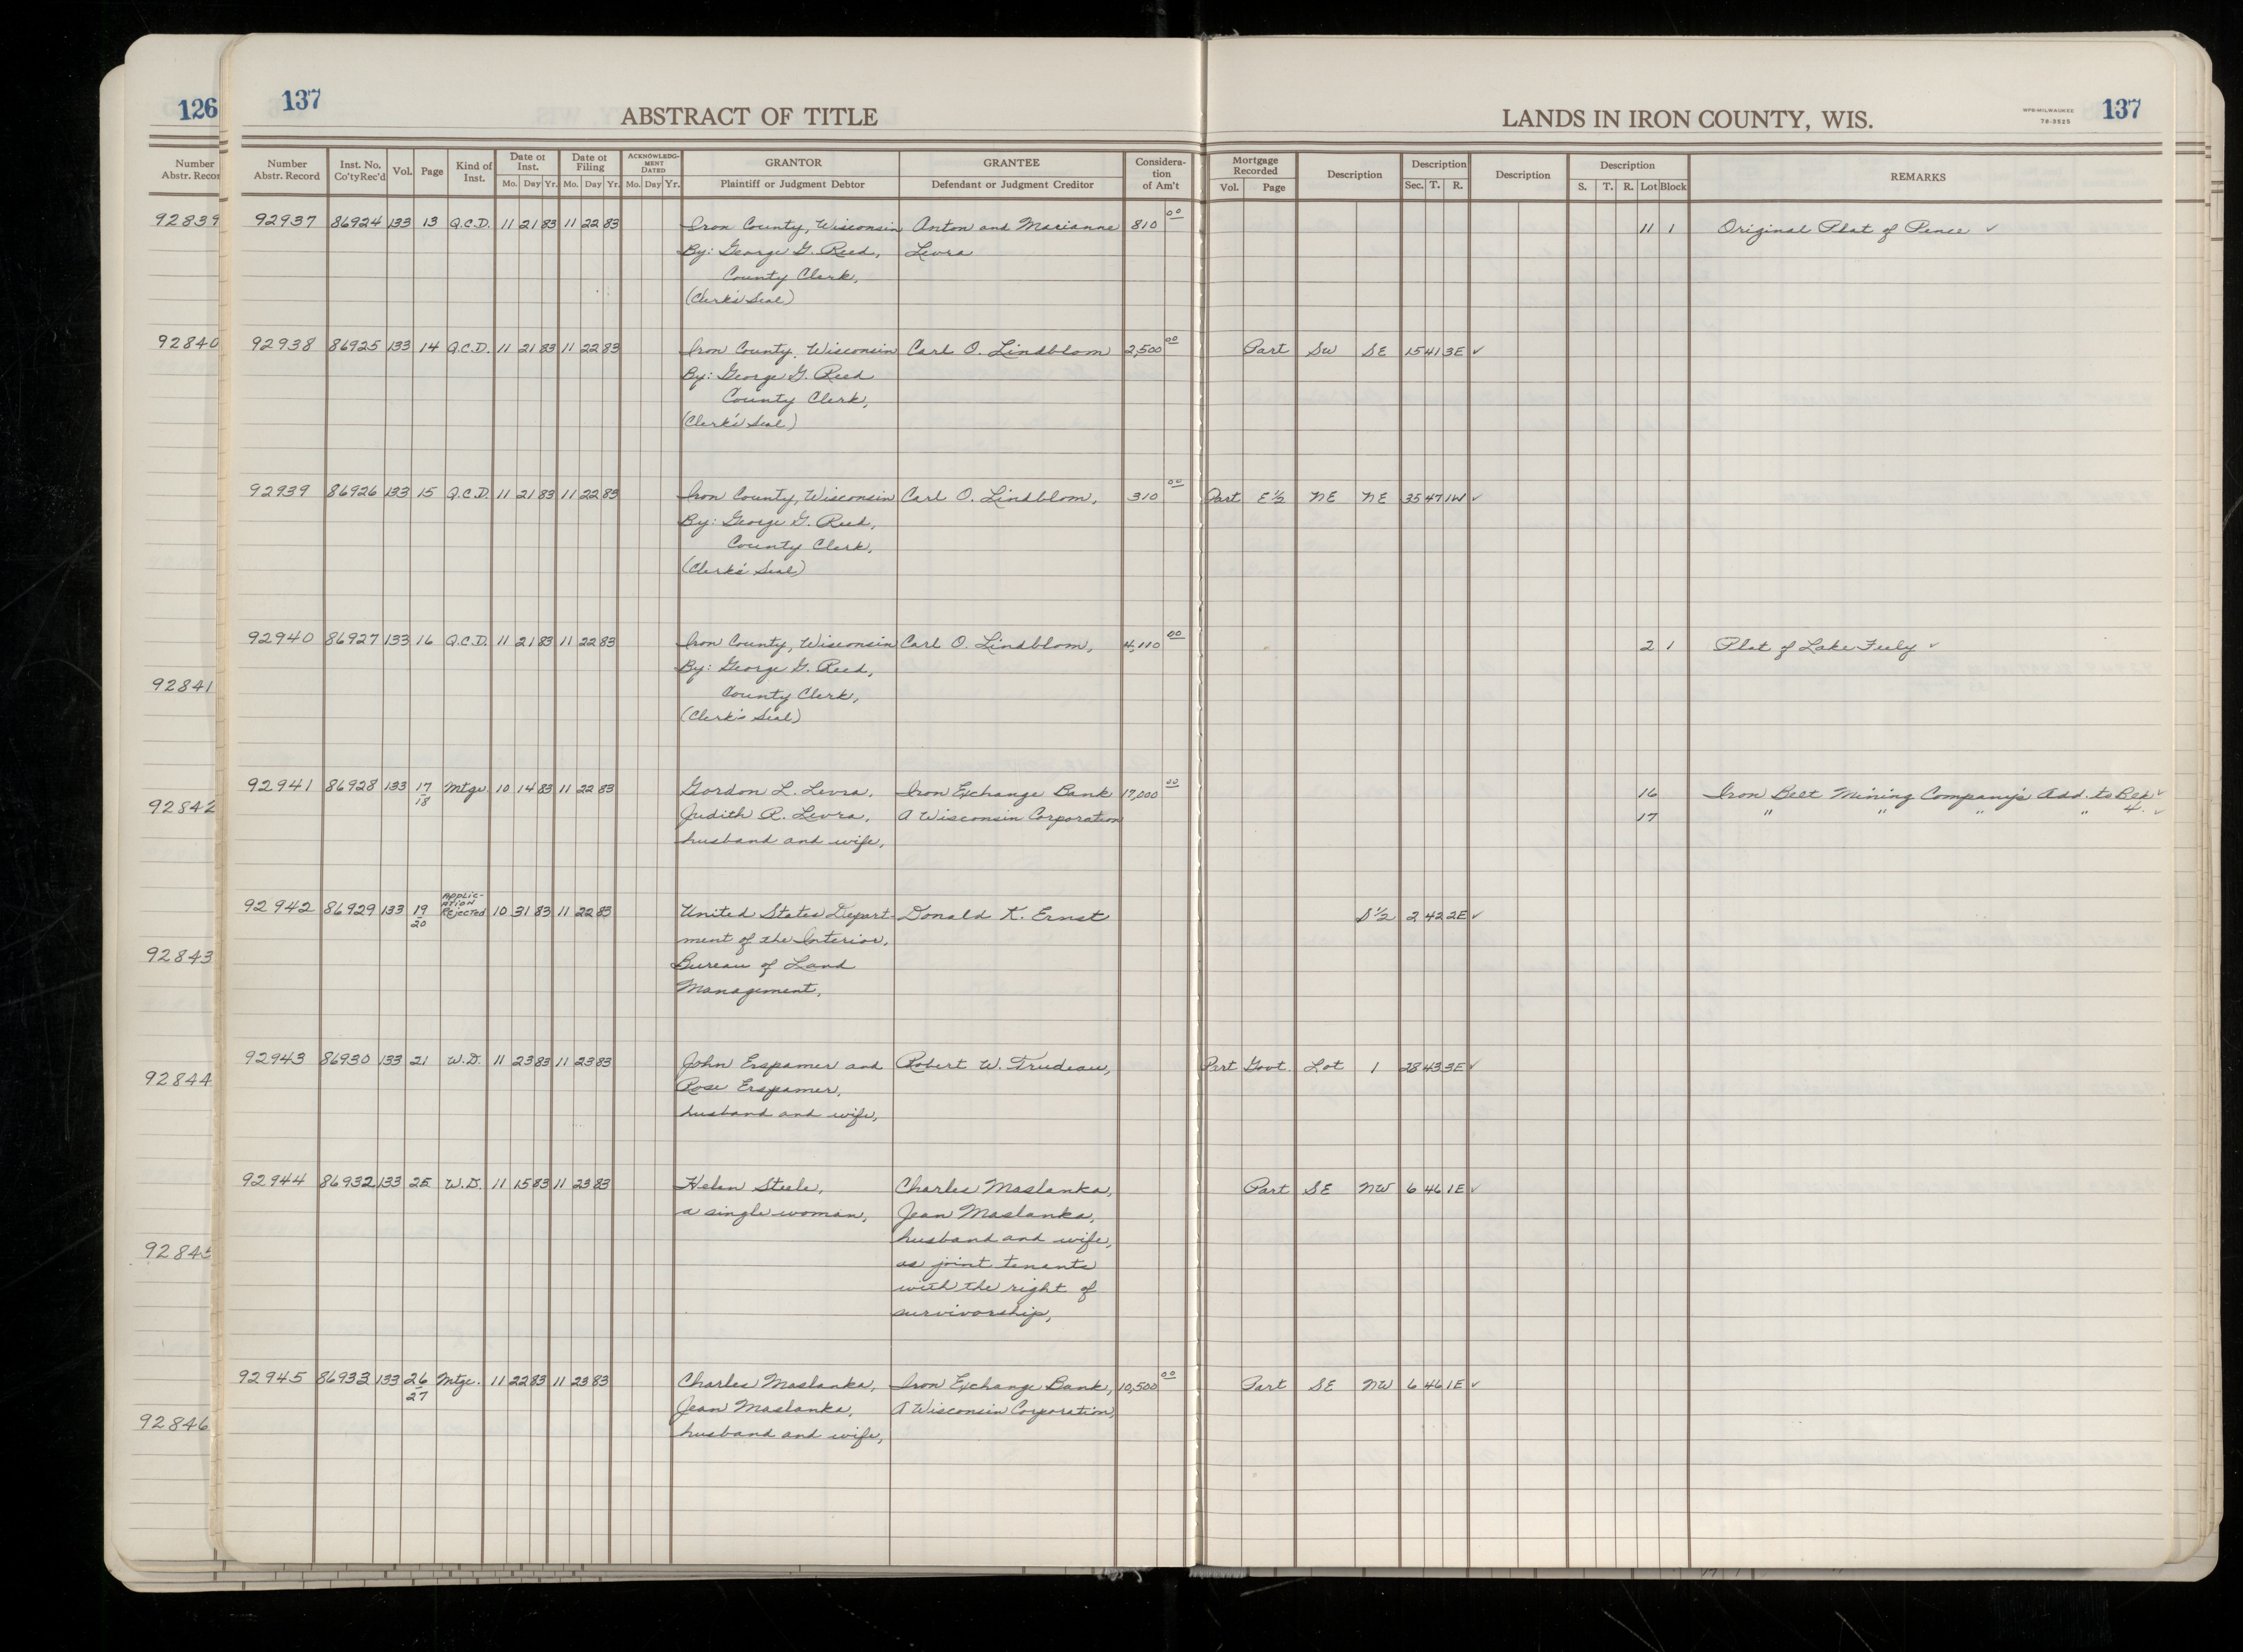 126
92839
92840
92841
92842
92843
92844
92845
92846
Number
Abstr. Recor
137
ABSTRACT OF TITLE
LANDS IN IRON COUNTY, WIS.
WPB-MILWAUKEE
78-3525
137
Number Abstr. Record | Inst. No. Co'ty Rec'd | Vol. | Page | Kind of Inst. | Date of Inst. Mo. Day Yr. | Date of Filing Mo. Day Yr. | ACKNOWLEDGMENT DATED Mo. Day Yr. | GRANTOR Plaintiff or Judgment Debtor | GRANTEE Defendant or Judgment Creditor | Consideration of Am't | Mortgage Recorded Vol. Page | Description | Description Sec. T. R. | Description | Description S. T. R. Lot Block | REMARKS
92937 86924 133 13 Q.C.D. 11 21 83 11 22 83 Iron County, Wisconsin Anton and Marianne 810 00 11 1 Original Plat of Pence ✓
By: George G. Reed, Levra
County Clerk,
(Clerk's Seal)
92938 86925 133 14 Q.C.D. 11 21 83 11 22 83 Iron County, Wisconsin Carl O. Lindblom 2,500 00 Part SW SE 15 41 3E ✓
By: George G. Reed
County Clerk,
(Clerk's Seal)
92939 86926 133 15 Q.C.D. 11 21 83 11 22 83 Iron County, Wisconsin Carl O. Lindblom, 310 00 Part E½ NE NE 35 47 1W ✓
By: George G. Reed,
County Clerk,
(Clerk's Seal)
92940 86927 133 16 Q.C.D. 11 21 83 11 22 83 Iron County, Wisconsin Carl O. Lindblom, 4,110 00 2 1 Plat of Lake Feely ✓
By: George G. Reed,
County Clerk,
(Clerk's Seal)
92941 86928 133 17/18 Mtge. 10 14 83 11 22 83 Gordon L. Levra, Iron Exchange Bank 17,000 00 16 Iron Belt Mining Company's Add. to Blk ✓
Judith R. Levra, A Wisconsin Corporation 17 " " " " 4. ✓
husband and wife,
92942 86929 133 19/20 Application Rejected 10 31 83 11 22 83 United States Depart- Donald K. Ernst S½ 2 42 2E ✓
ment of the Interior,
Bureau of Land
Management,
92943 86930 133 21 W.D. 11 23 83 11 23 83 John Erspamer and Robert W. Trudeau, Part Govt. Lot 1 28 43 3E ✓
Rose Erspamer,
husband and wife,
92944 86932 133 25 W.D. 11 15 83 11 23 83 Helen Steele, Charles Maslanka, Part SE NW 6 46 1E ✓
a single woman, Jean Maslanka,
husband and wife,
as joint tenants
with the right of
survivorship,
92945 86933 133 26/27 Mtge. 11 22 83 11 23 83 Charles Maslanka, Iron Exchange Bank, 10,500 00 Part SE NW 6 46 1E ✓
Jean Maslanka, A Wisconsin Corporation,
husband and wife,